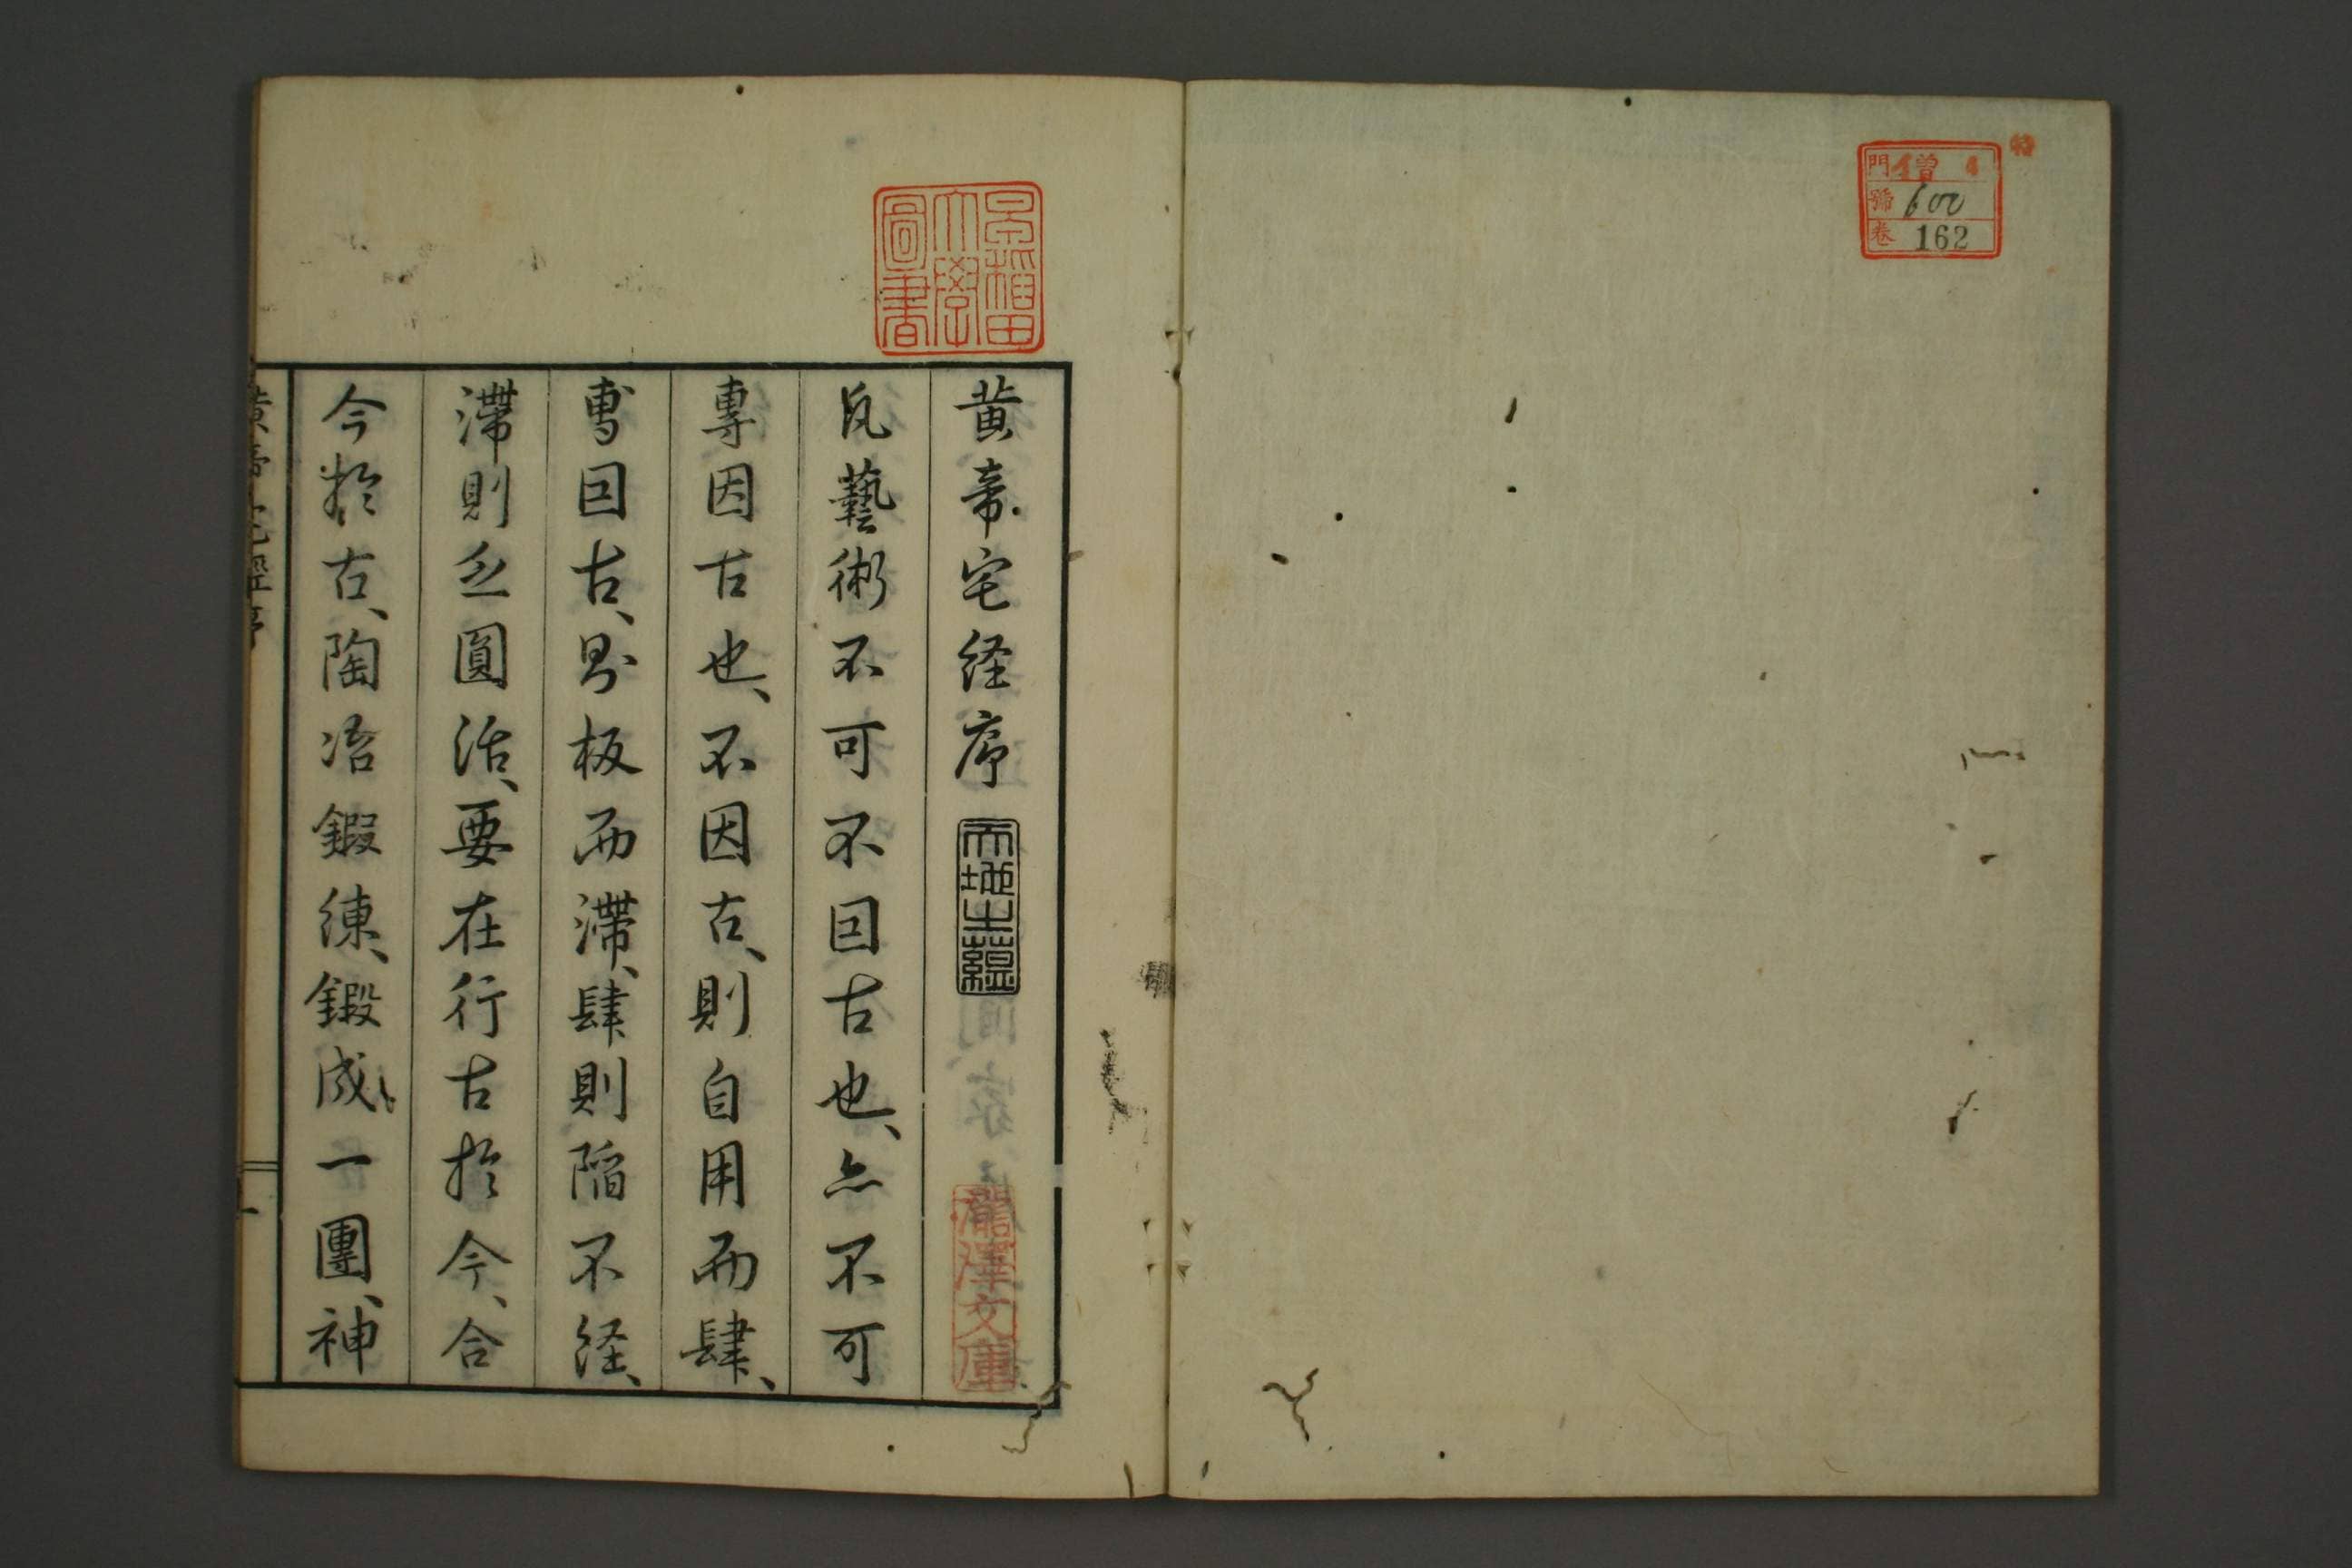 門 僧 4
號 600
卷 162
早稲田
大學
圖書
黄帝宅経序
天地之蘊
瀧澤文庫
凡藝術不可不因古也、亦不可
專因古也、不因古、則自用而肆、
専因古、則板而滞、肆則陥不経、
滞則乏圓活、要在行古於今、合
今於古、陶冶鍛練、鍛成一團、神
黄帝宅經序
一